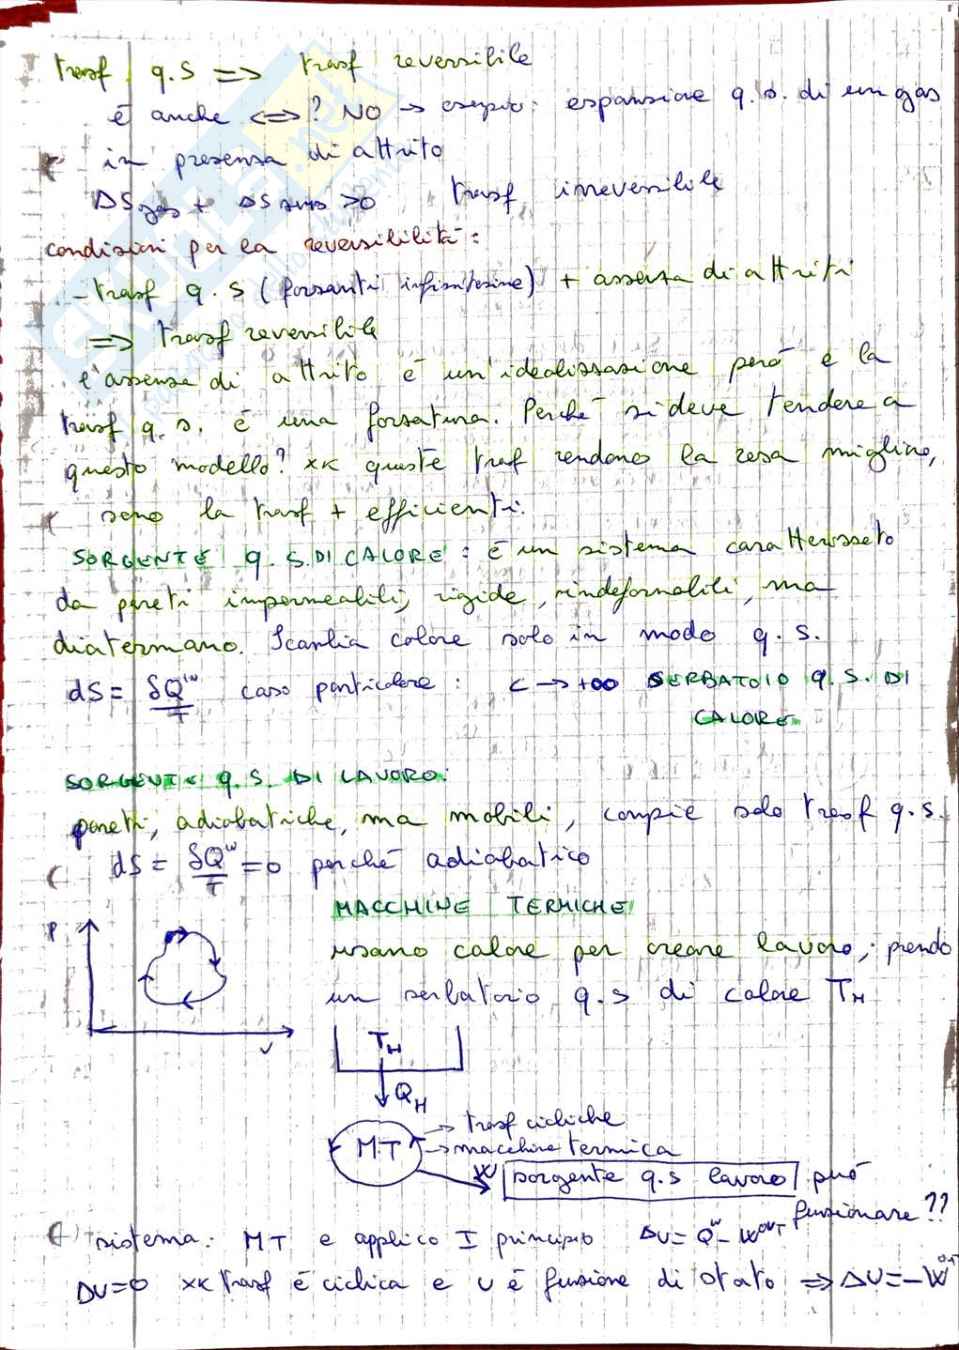 trasf q.s => trasf reversibile
è anche <=>? NO → esempio: espansione q.s. di un gas
in presenza di attrito
ΔSgas + ΔSamb >0 trasf irreversibile
condizioni per la reversibilità:
- trasf q.s (forzanti infinitesime) + assenza di attriti
=> trasf reversibile
l'assenza di attrito è un'idealizzazione però e la
trasf q.s. è una forzatura. Perché si deve tendere a
questo modello? xk queste trasf rendono la resa migliore,
sono la trasf + efficienti.
SORGENTE q.S. DI CALORE: è un sistema caratterizzato
da pareti impermeabili, rigide, indeformabili, ma
diatermano. Scambia calore solo in modo q.s.
dS = δQ^IN/T caso particolare: C → +∞ SERBATOIO q.S. DI
CALORE
SORGENTE q.S. DI LAVORO:
pareti, adiabatiche, ma mobili, compie solo trasf q.s.
dS = δQ^IN/T = 0 perché adiabatico
MACCHINE TERMICHE
usano calore per creare lavoro; prendo
un serbatoio q.s di calore TH
P
V
TH
QH
MT
→ trasf cicliche
→ macchina termica
W
sorgente q.s lavoro può
funzionare??
sistema: MT e applico I principio ΔU = Q^IN - W^OUT
ΔU=0 xk trasf è ciclica e U è funzione di stato => ΔU = -W^OUT